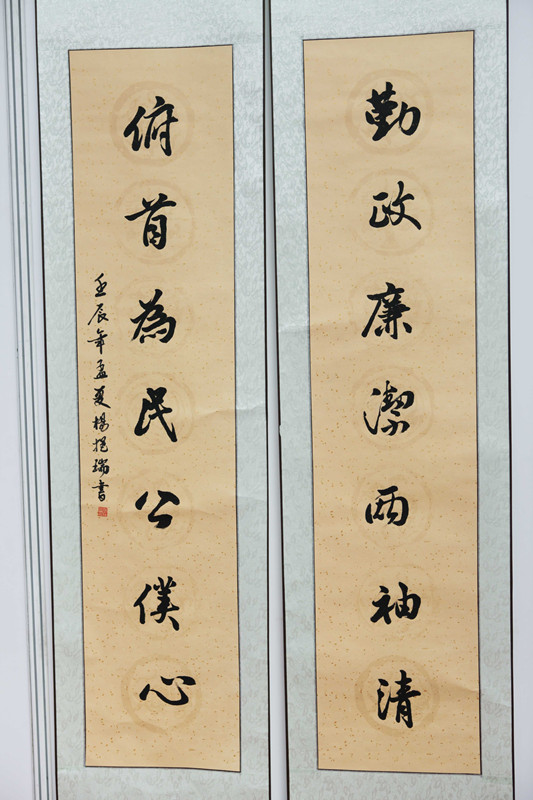 勤政廉潔兩袖清
俯首為民公僕心
壬辰年孟夏楊挹瑞書